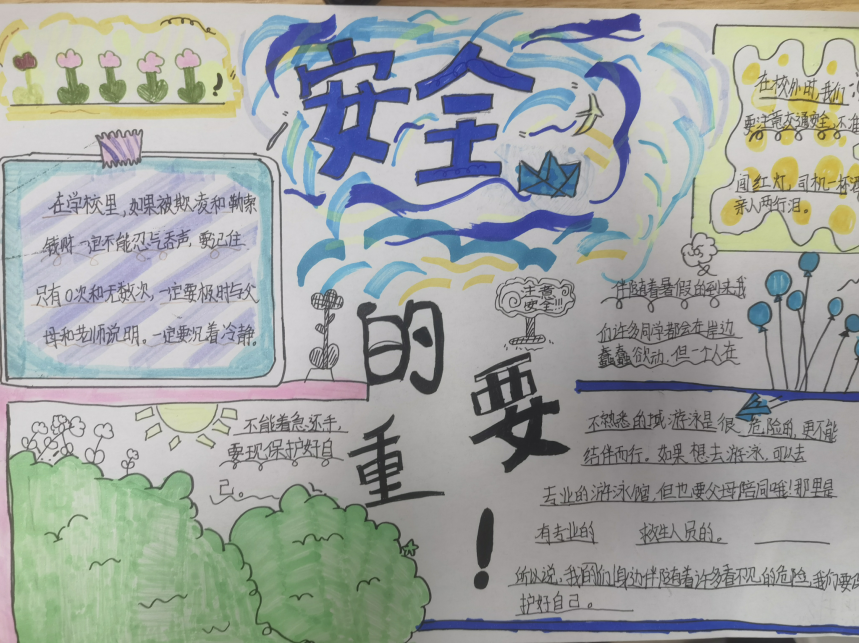 安全
的
重
要
！
在学校里，如果被欺凌和勒索
钱时一定不能忍气吞声，要记住
只有0次和无数次，一定要极时与父
母和老师说明。一定要沉着冷静。
不能着急还手，
要现保护好自
己。
在校外时，我们
要注意交通安全，不准
闯红灯，司机一杯酒
亲人两行泪。
注意
安全!!!
伴随着暑假的到来我
们许多同学都会在岸边
蠢蠢欲动，但一个人在
不熟悉的域游泳是很危险的，更不能
结伴而行。如果想去游泳，可以去
专业的游泳馆，但也要父母陪同哦！那里是
有专业的 救生人员的。
所以说，我的们身边伴随着许多看不见的危险，我们要
护好自己。